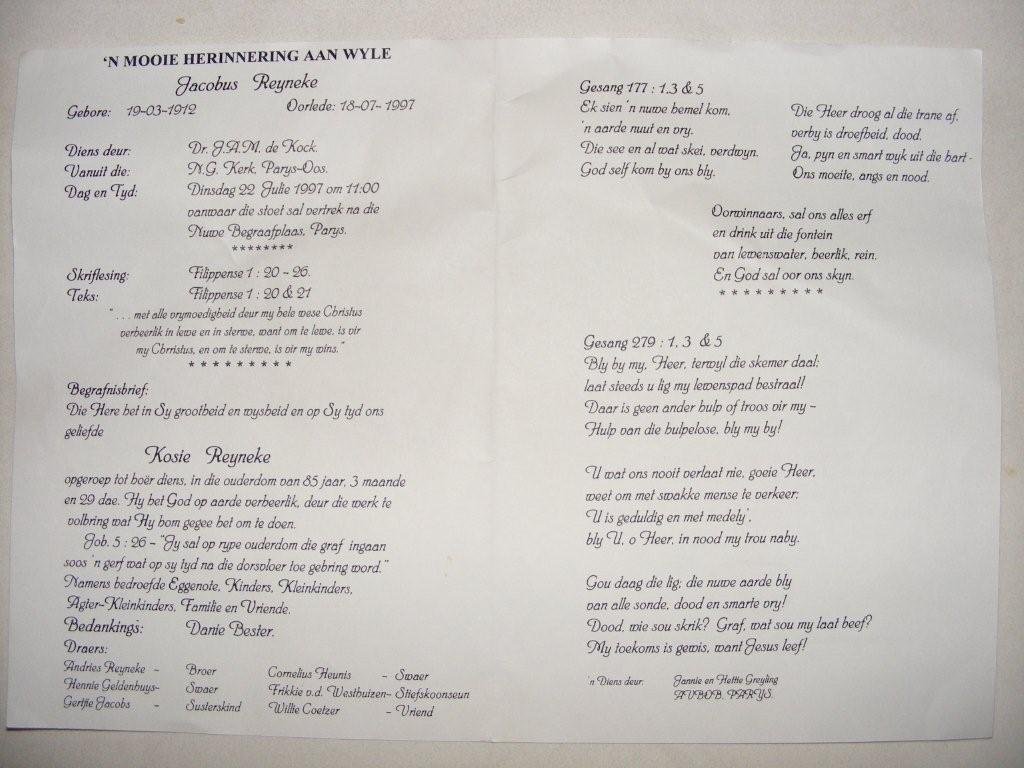 ‘N MOOIE HERINNERING AAN WYLE
Jacobus Reyneke
Gebore: 19-03-1912 Oorlede: 18-07-1997
Diens deur: Dr. J.A.M. de Kock.
Vanuit die: N.G. Kerk, Parys-Oos.
Dag en Tyd: Dinsdag 22 Julie 1997 om 11:00
vanwaar die stoet sal vertrek na die
Nuwe Begraafplaas, Parys.
********
Skriflesing: Filippense 1 : 20 - 26.
Teks: Filippense 1 : 20 & 21
“ . . . met alle vrymoedigheid deur my hele wese Christus
verheerlik in lewe en in sterwe, want om te lewe, is vir
my Chrristus, en om te sterwe, is vir my wins.”
* * * * * * * * *
Begrafnisbrief:
Die Here het in Sy grootheid en wysheid en op Sy tyd ons
geliefde
Kosie Reyneke
opgeroep tot hoër diens, in die ouderdom van 85 jaar, 3 maande
en 29 dae. Hy het God op aarde verheerlik, deur die werk te
volbring wat Hy hom gegee het om te doen.
Job. 5 : 26 - “Jy sal op rype ouderdom die graf ingaan
soos ’n gerf wat op sy tyd na die dorsvloer toe gebring word.”
Namens bedroefde Eggenote, Kinders, Kleinkinders,
Agter-Kleinkinders, Familie en Vriende.
Bedankings: Danie Bester.
Draers:
Andries Reyneke - Broer Cornelius Heunis - Swaer
Hennie Geldenhuys- Swaer Frikkie v.d. Westhuizen- Stiefskoonseun
Gertjie Jacobs - Susterskind Willie Coetzer - Vriend
Gesang 177 : 1,3 & 5
Ek sien ’n nuwe hemel kom,
’n aarde nuut en vry.
Die see en al wat skei, verdwyn.
God self kom by ons bly.
Die Heer droog al die trane af,
verby is droefheid, dood.
Ja, pyn en smart wyk uit die hart -
Ons moeite, angs en nood.
Oorwinnaars, sal ons alles erf
en drink uit die fontein
van lewenswater, heerlik, rein.
En God sal oor ons skyn.
* * * * * * * * *
Gesang 279 : 1, 3 & 5
Bly by my, Heer, terwyl die skemer daal;
laat steeds u lig my lewenspad bestraal!
Daar is geen ander hulp of troos vir my -
Hulp van die hulpelose, bly my by!
U wat ons nooit verlaat nie, goeie Heer,
weet om met swakke mense te verkeer;
U is geduldig en met medely’,
bly U, o Heer, in nood my trou naby.
Gou daag die lig; die nuwe aarde bly
van alle sonde, dood en smarte vry!
Dood, wie sou skrik? Graf, wat sou my laat beef?
My toekoms is gewis, want Jesus leef!
’n Diens deur: Jannie en Hettie Greyling
AVBOB, PARYS.